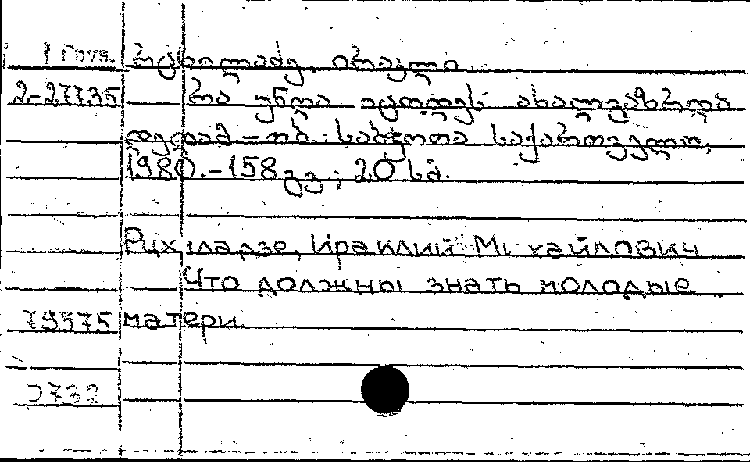 რცხილაძე, ირაკლი
2-27735 რა უნდა იცოდეს ახალგაზრდა
დედამ.-თბ.: საბჭოთა საქართველო,
1980.-158 გვ.; 20 სმ.
Рцхиладзе, Ираклий Михайлович
Что должны знать молодые
79575 матери.